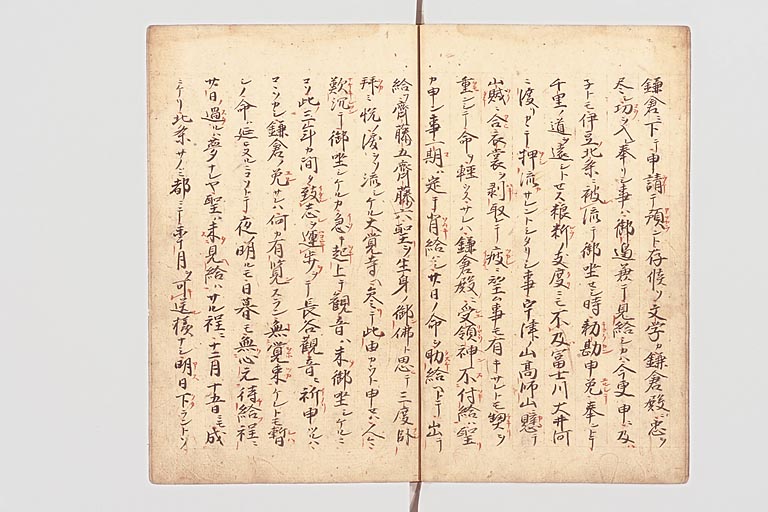 鎌倉ヘ下テ申請テ頂ント存候ソ文学カ鎌倉殿ニ忠ヲ
尽シ功ヲ入奉リシ事ハ御邊兼テ見給シカハ今更申ニ及ハ
子トモ伊豆北条ニ被流テ御坐セシ時勅勘申免奉ントテ
千里ノ道ヲ遠シトセス粮粆ノ支度ニモ不及冨士川大井河
ニ渡リシテ押流サレントシタリシ事宇津山髙師山懸テ
山賊ニ合衣裳ヲ剥取レテ疲ニ望ム事モ有キサレトモ契ヲ
重シテ命ヲ軽ウスサレハ鎌倉殿ニ受領神不付給ハ聖
カ申シ事一期ハ定テ背給ハシ廿日ノ命ヲ助給ヘトテ出テ
給フ齊藤五齊藤六聖ヲ生身ノ御佛ト思テ三度卧
拜ミ悦涙ヲソ流シケル大覚寺ヘ参テ此由カクト申セハ人々
歎沉テ御坐シケルカ急キ起上テ観音ハ未御坐シケルニ
コソ此三年カ間ヲ致志ヲ運歩ヲテ長谷観音ニ祈申ツルハ
コソカシ鎌倉ヲ免サレハ何カ有覧スラン無覚束ケレトモ暫
シノ命ハ延ヌルニコソトテ夜明ルモ日暮モ無心元待給程ニ
廿日過ルハ夢ナレヤ聖ハ未見給ハサル程ニ十二月十五日ニモ成
ニケリ北条サノミ都ニテ年月ヲ可送様ナシ明日下ラントソ